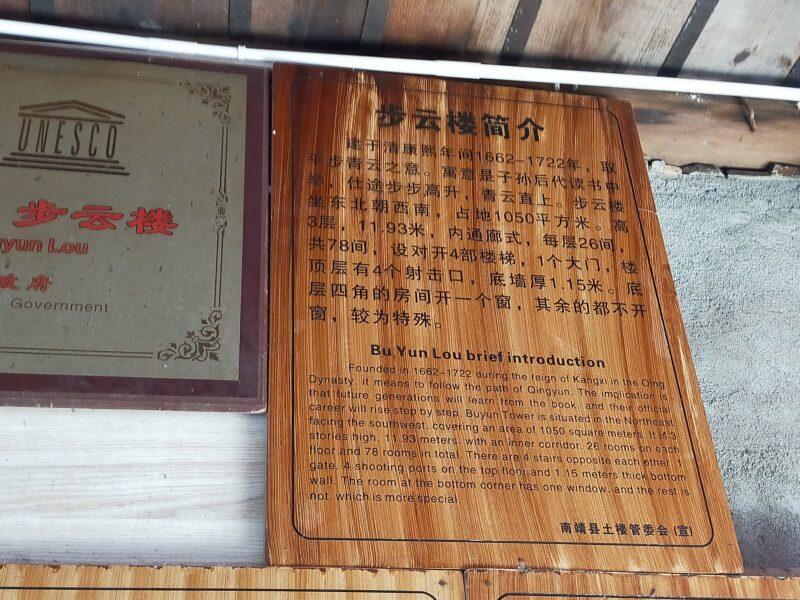 UNESCO
步云楼
yun Lou
政府
Government
步云楼简介
建于清康熙年间1662-1722年，取
平步青云之意。寓意是子孙后代读书中
举，仕途步步高升，青云直上。步云楼
坐东北朝西南，占地1050平方米。高
3层，11.93米，内通廊式，每层26间，
共78间，设对开4部楼梯，1个大门，楼
顶层有4个射击口，底墙厚1.15米。底
层四角的房间开一个窗，其余的都不开
窗，较为特殊。
Bu Yun Lou brief introduction
Founded in 1662-1722 during the reign of Kangxi in the Qing
Dynasty, it means to follow the path of Qingyun. The implication is
that future generations will learn from the book, and their official
career will rise step by step. Buyun Tower is situated in the Northeast
facing the southwest, covering an area of 1050 square meters. It is 3
stories high, 11.93 meters, with an inner corridor, 26 rooms on each
floor and 78 rooms in total. There are 4 stairs opposite each other, 1
gate, 4 shooting ports on the top floor and 1.15 meters thick bottom
wall. The room at the bottom corner has one window, and the rest is
not, which is more special.
南靖县土楼管委会（宣）